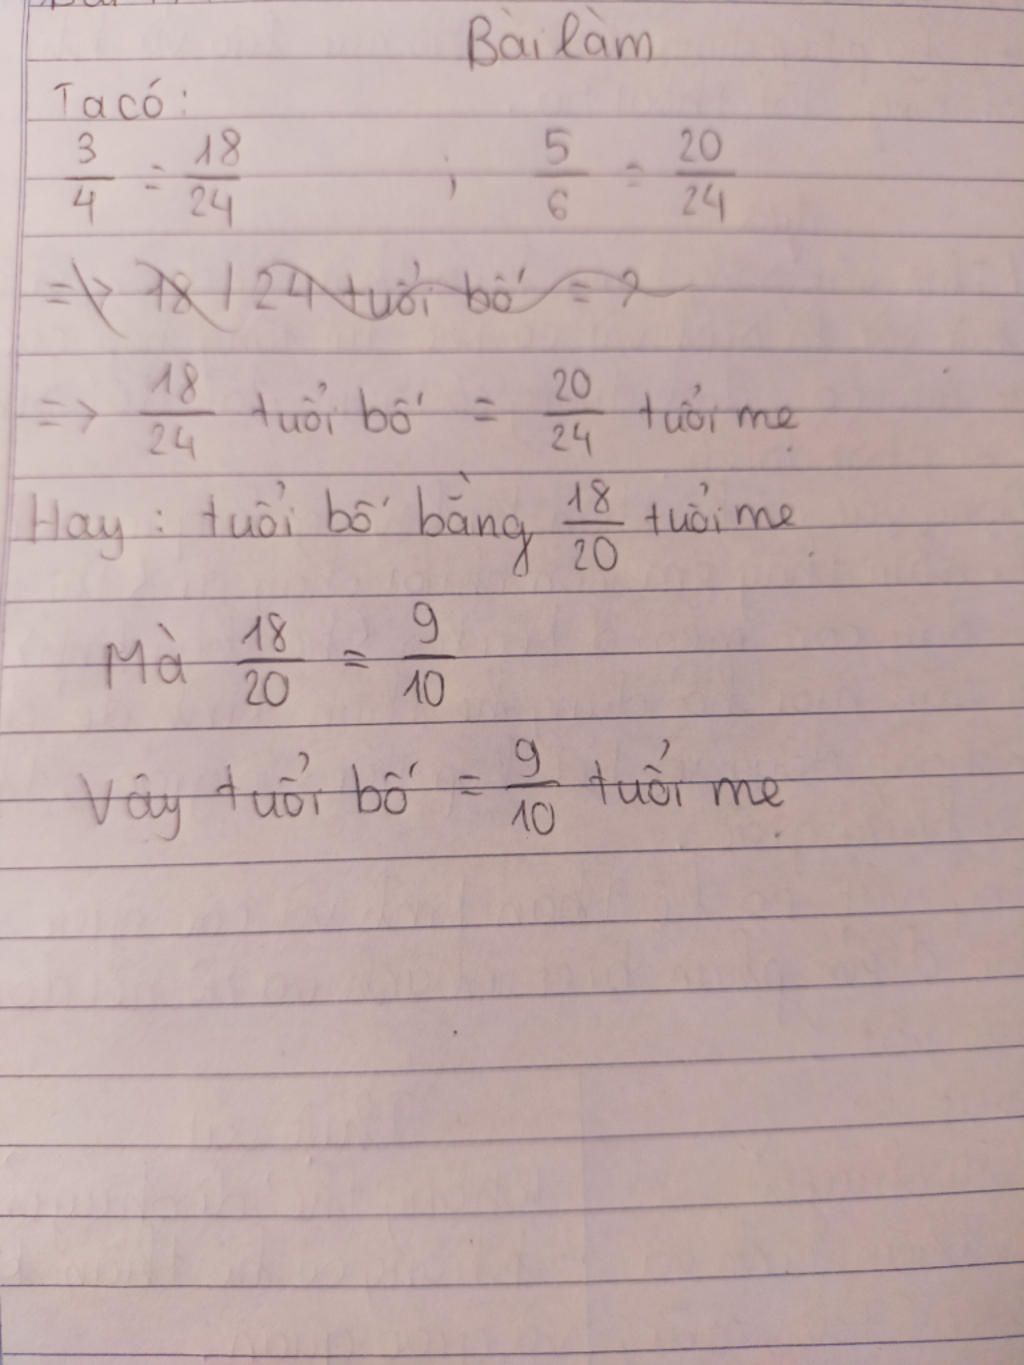 Bài làm
Ta có:
3/4 = 18/24 ; 5/6 = 20/24
=> 18/24 tuổi bố = ?
=> 18/24 tuổi bố = 20/24 tuổi mẹ
Hay: tuổi bố bằng 18/20 tuổi mẹ
Mà 18/20 = 9/10
Vây tuổi bố = 9/10 tuổi mẹ